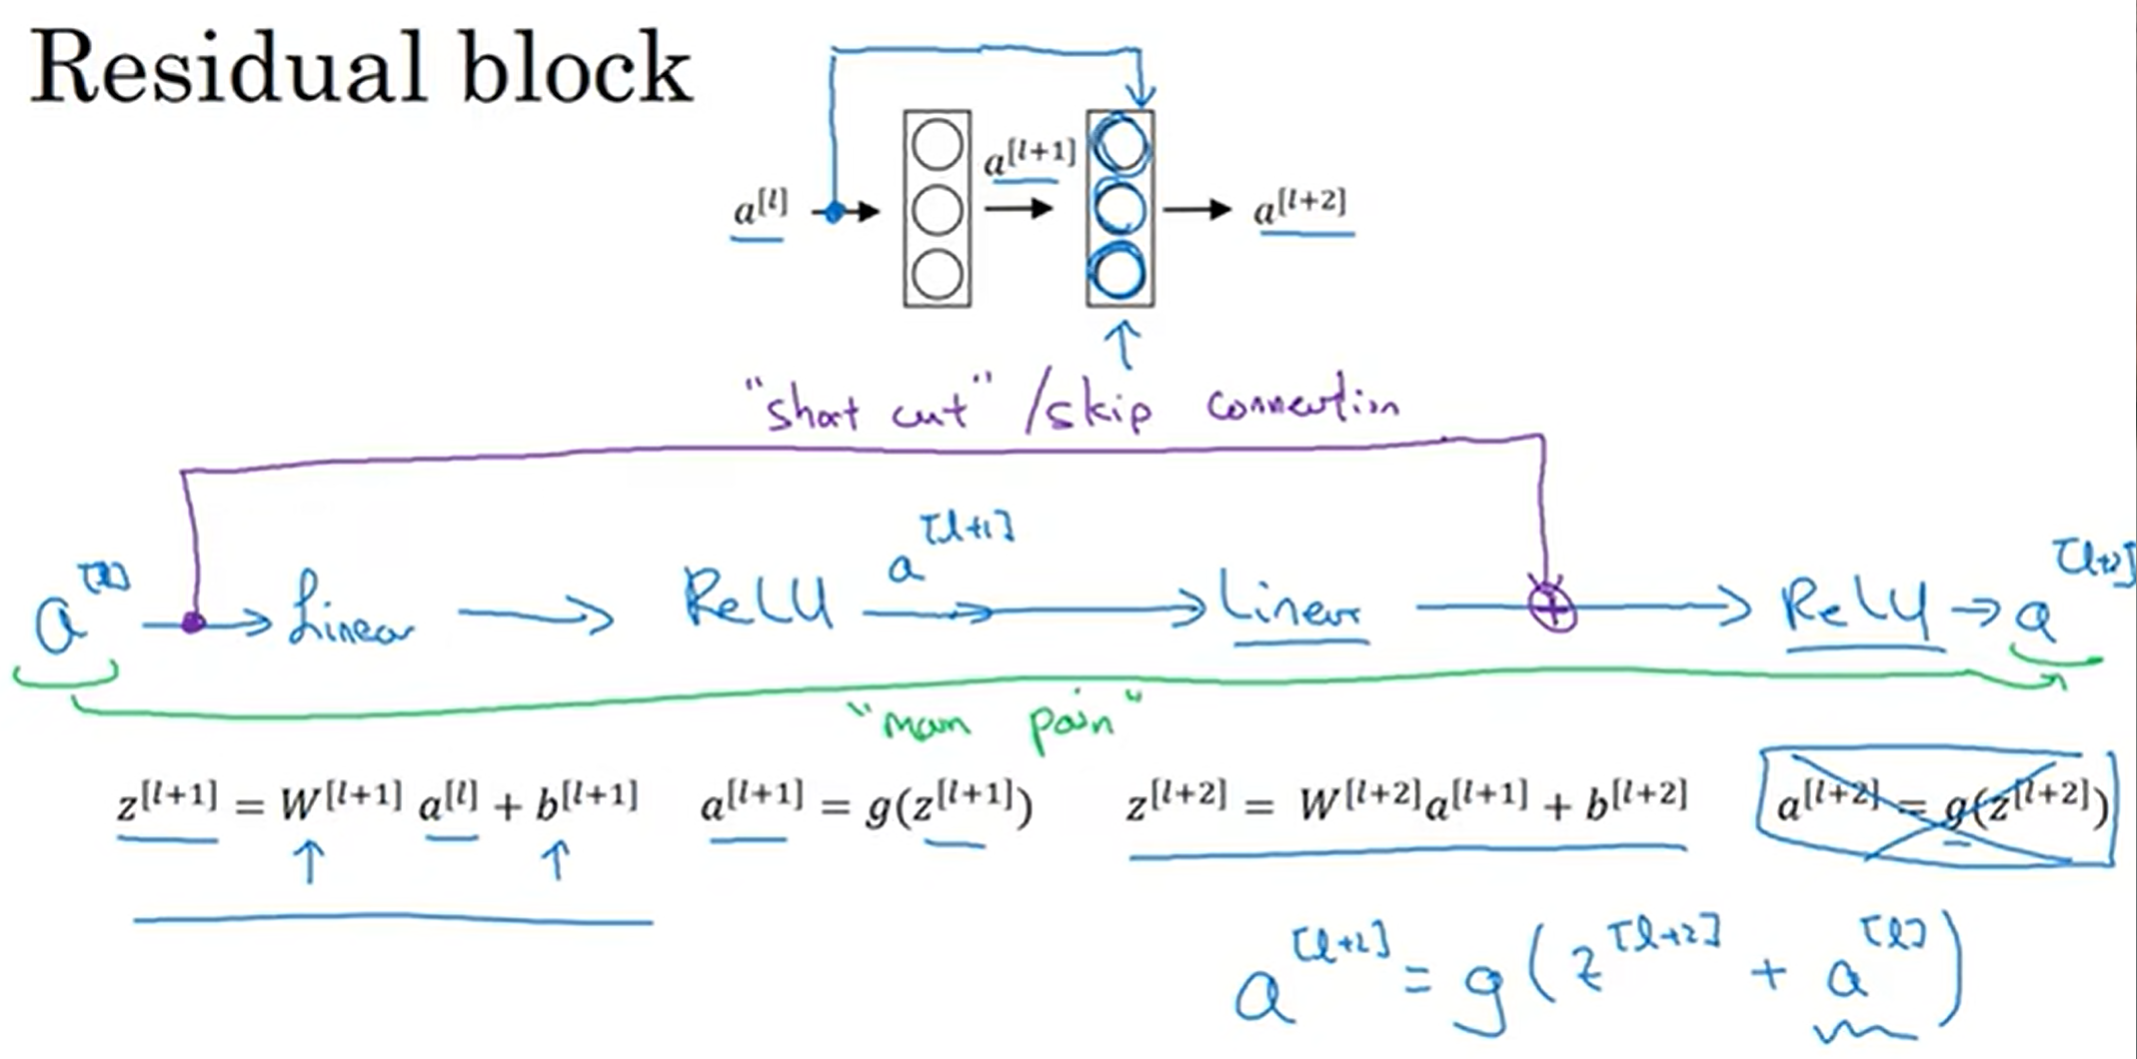 Residual block
a^[l] a^[l+1] a^[l+2]
"short cut" / skip connection
a^[l] → Linear → ReLU a^[l+1] → Linear ⊕ → ReLU → a^[l+2]
"main path"
z^[l+1] = W^[l+1] a^[l] + b^[l+1] a^[l+1] = g(z^[l+1]) z^[l+2] = W^[l+2]a^[l+1] + b^[l+2] a^[l+2] = g(z^[l+2])
a^[l+2] = g(z^[l+2] + a^[l])